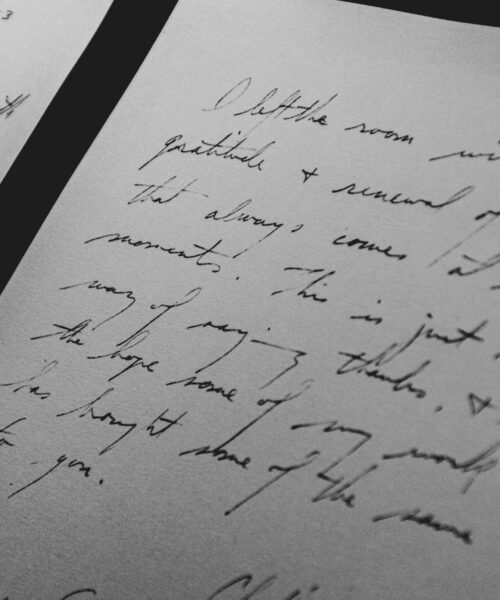 3
th
I left the room wi
gratitude & renewal of
that always comes at
moments. This is just
way of saying thanks, &
the hope some of my work
has brought some of the same
to you.